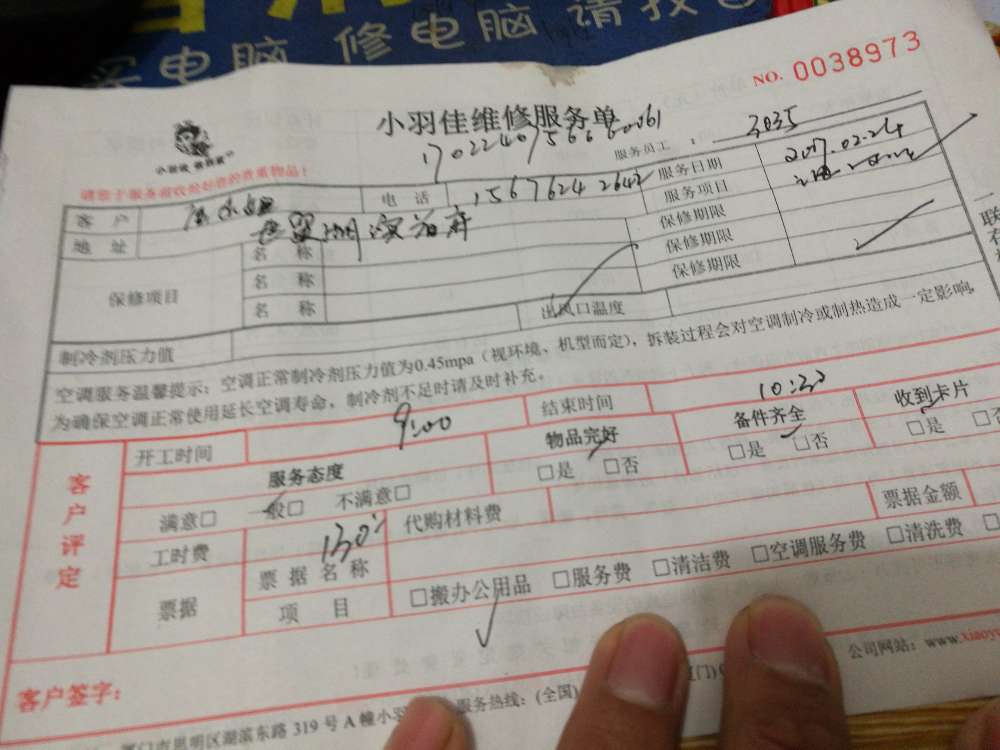 电脑 修电脑 请找
NO. 0038973
小羽佳维修服务单
服务员工: 3035
请您于服务前收拾好您的贵重物品!
客户 电话 15676242642 服务日期 2017.02.24
地址 服务项目
保修项目 名称 保修期限
名称 保修期限
名称 保修期限
制冷剂压力值 出风口温度
空调服务温馨提示:空调正常制冷剂压力值为0.45mpa(视环境、机型而定),拆装过程会对空调制冷或制热造成一定影响,
为确保空调正常使用延长空调寿命,制冷剂不足时请及时补充。
客户评定
开工时间 9:00 结束时间 10:30
服务态度 物品完好 备件齐全 收到卡片
满意□ 一般□ 不满意□ □是 □否 □是 □否 □是 □否
工时费 130 代购材料费 票据金额
票据 票据名称
项目 □搬办公用品 □服务费 □清洁费 □空调服务费 □清洗费
客户签字:
公司网站:www.xiaoy
厦门市思明区湖滨东路 319 号 A 幢小羽 服务热线:(全国)